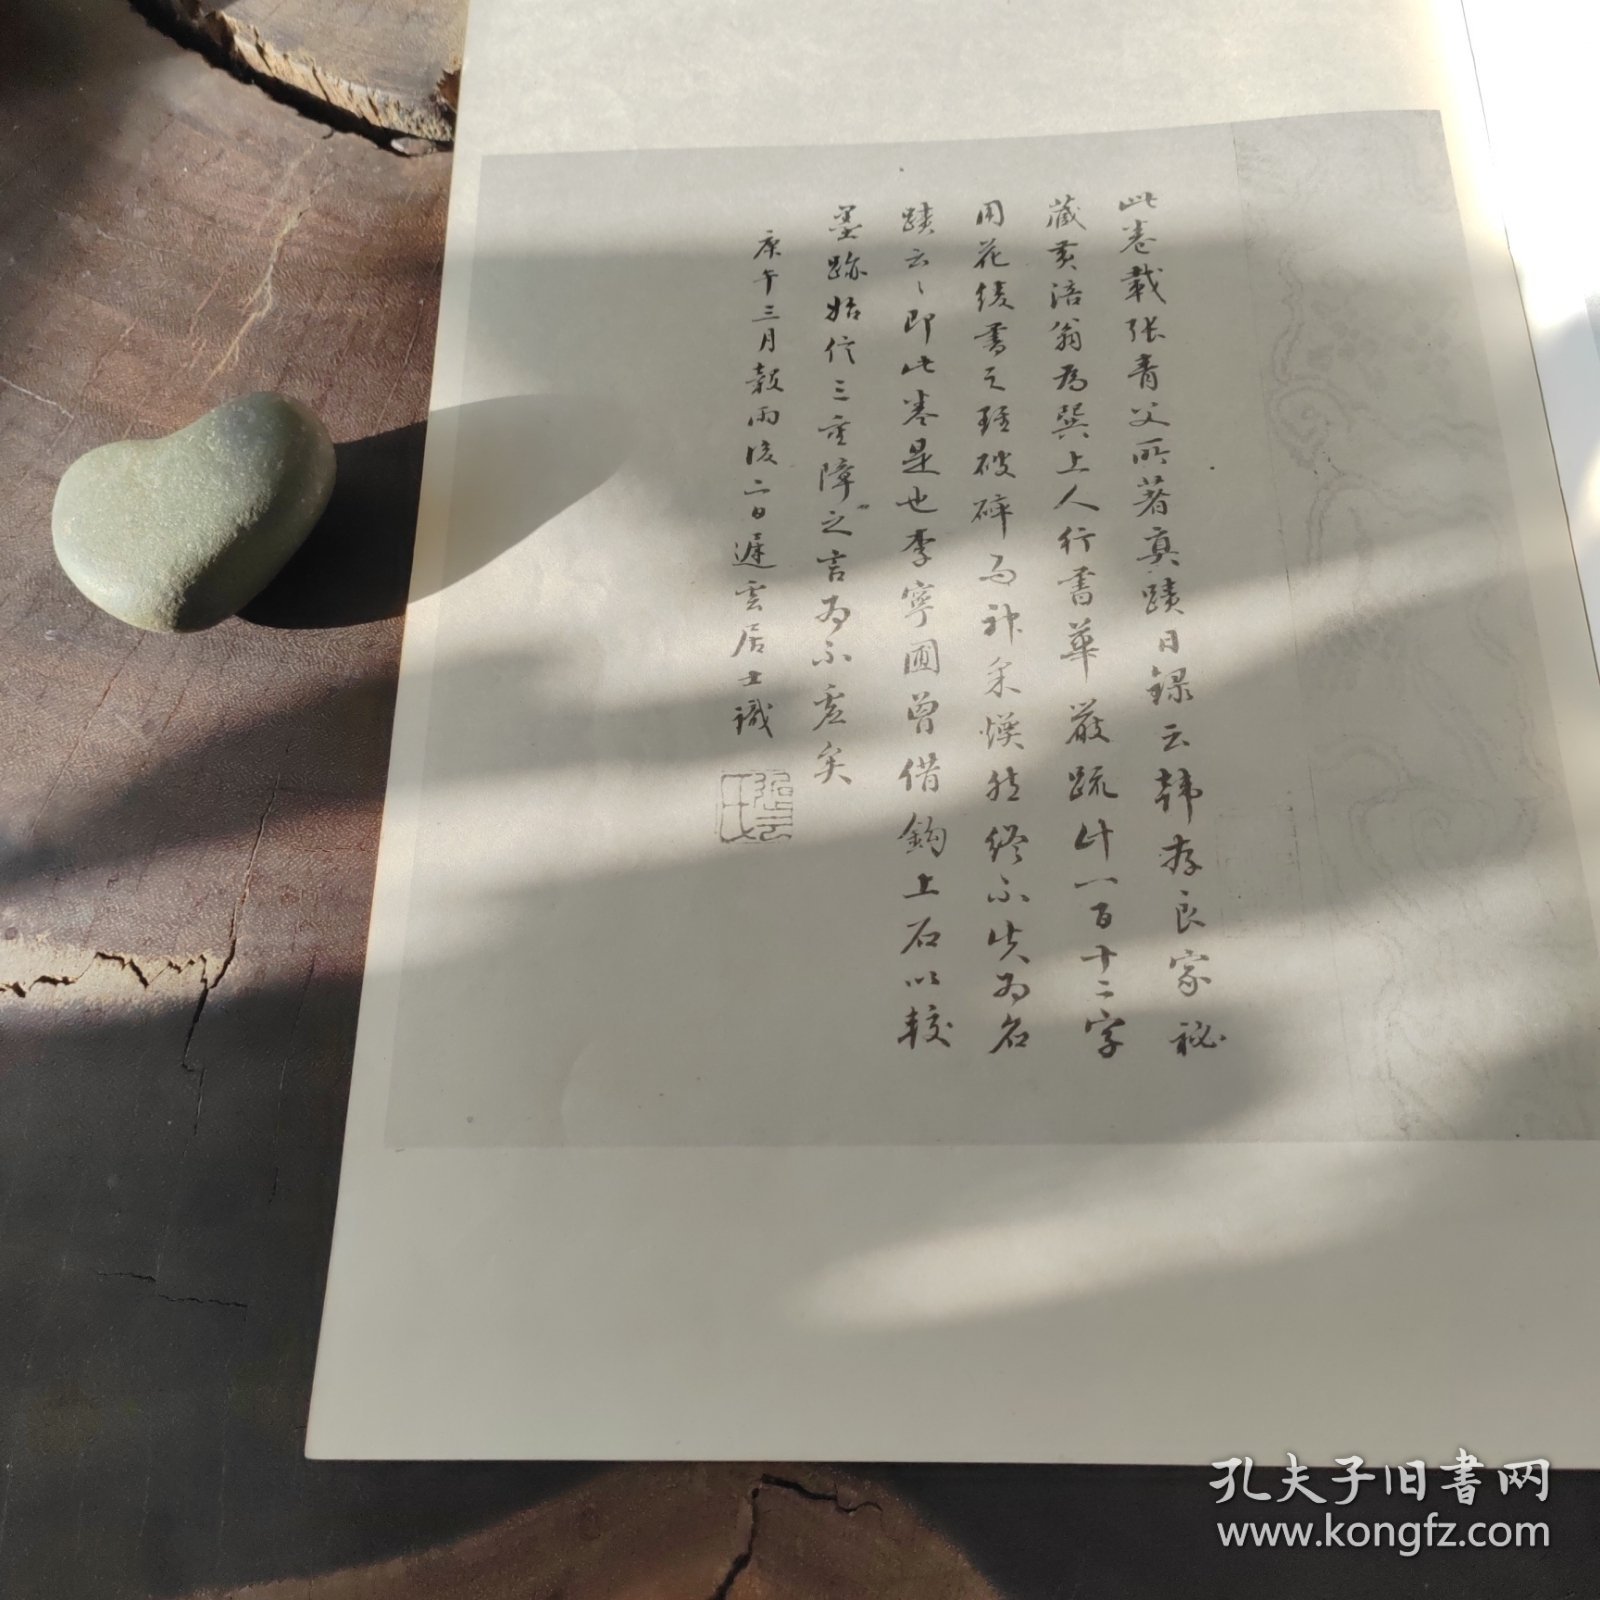 此卷載張青父所著真蹟日録云韩存良家秘
藏黄涪翁為巽上人行書華嚴疏计一百十二字
用花绫書之雖破碎而神采焕然終不失為名
蹟云〻即此卷是也李寧圃曾借鈎上石以較
墨跡始信三重障之言为不虚矣
庚午三月穀雨後二日遲雲居士識
孔夫子旧書网
www.kongfz.com